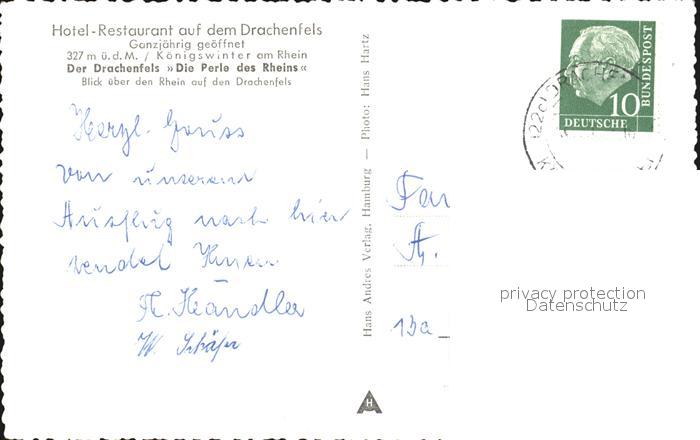 Hotel-Restaurant auf dem Drachenfels
Ganzjährig geöffnet
327 m ü.d.M. / Königswinter am Rhein
Der Drachenfels »Die Perle des Rheins«
Blick über den Rhein auf den Drachenfels
Herzl. Gruss
von unserem
Ausflug nach hier
sendet Ihnen
A. Händler
W. Schäfer
Hans Andres Verlag, Hamburg — Photo: Hans Hartz
H
DEUTSCHE
BUNDESPOST
10
(22c) DRACHE
Fam
A.
13a
privacy protection
Datenschutz